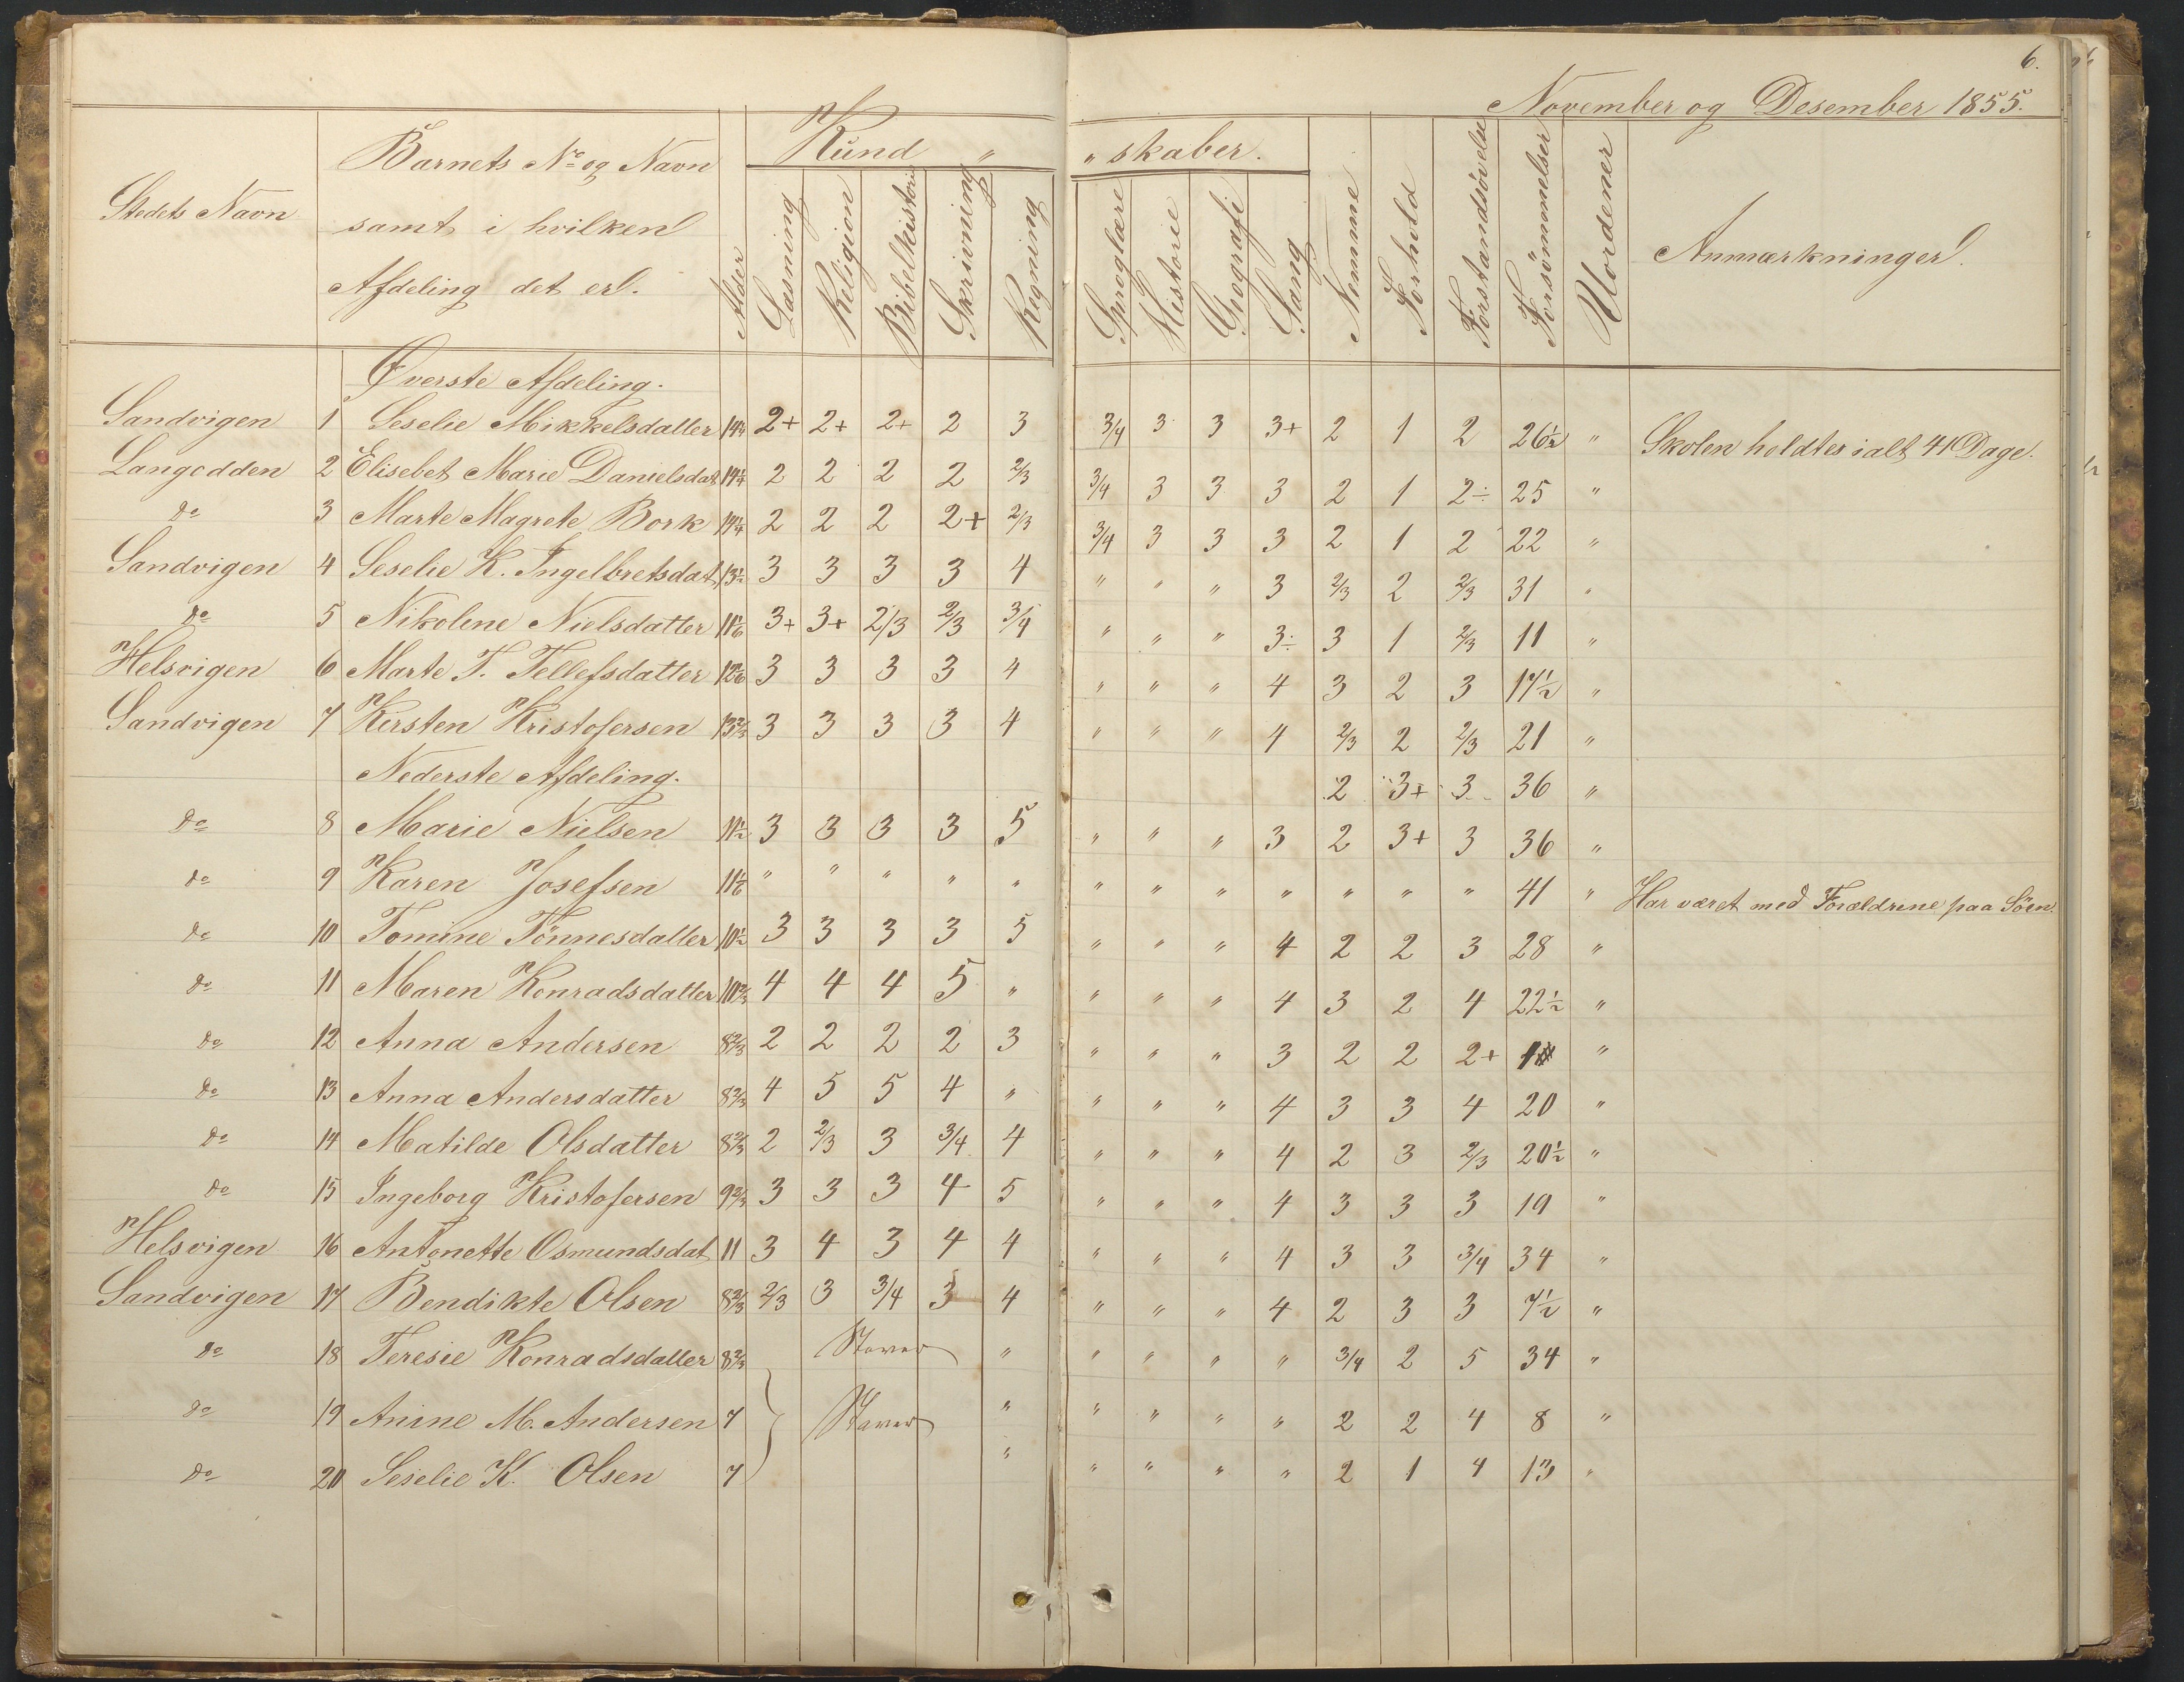 6.
November og Desember 1855.
Stedets Navn
Barnets No og Navn
samt i hvilken
Afdeling det er.
Alder
Kund „
„ skaber.
Læsning
Religion
Bibelhistorie
Skrivning
Regning
Sproglære
Historie
Geografi
Sang
Nemme
Forhold
Forstandsøvelse
Forsømmelser
Uordener
Anmærkninger.
Øverste Afdeling.
Sandvigen 1 Seselie Mikkelsdatter 14 2+ 2+ 2+ 2 3 3/4 3 3 3+ 2 1 2 26½ „ Skolen holdtes ialt 41 Dage.
Langodden 2 Elisebet Marie Danielsdat 14¼ 2 2 2 2 2/3 3/4 3 3 3 2 1 2÷ 25 „
do 3 Marte Magrete Bork 14¼ 2 2 2 2+ 2/3 3/4 3 3 3 2 1 2 22 „
Sandvigen 4 Seselie K. Ingelbretsdat 13½ 3 3 3 3 4 „ „ „ 3 2/3 2 2/3 31 „
do 5 Nikolene Nielsdatter 11 3+ 3+ 2/3 2/3 3/4 „ „ „ 3÷ 3 1 2/3 11 „
Helsvigen 6 Marte T. Tellefsdatter 12 3 3 3 3 4 „ „ „ 4 3 2 3 17½ „
Sandvigen 7 Kirsten Kristofersen 13⅔ 3 3 3 3 4 „ „ „ 4 2/3 2 2/3 21 „
Nederste Afdeling. 2 3+ 3 36 „
do 8 Marie Nielsen 11½ 3 3 3 3 5 „ „ „ 3 2 3+ 3 36 „
do 9 Karen Josefsen 11⅙ „ „ „ „ „ „ „ „ „ „ „ „ 41 „ Har været med Forældrene paa Söen.
do 10 Tomine Tönnesdatter 10½ 3 3 3 3 5 „ „ „ 4 2 2 3 28 „
do 11 Maren Konradsdatter 10⅔ 4 4 4 5 „ „ „ „ 4 3 2 4 22½ „
do 12 Anna Andersen 8⅔ 2 2 2 2 3 „ „ „ 3 2 2 2+ 1 „
do 13 Anna Andersdatter 8⅔ 4 5 5 4 „ „ „ „ 4 3 3 4 20 „
do 14 Matilde Olsdatter 8⅔ 2 2/3 3 3/4 4 „ „ „ 4 2 3 2/3 20½ „
do 15 Ingeborg Kristofersen 9⅔ 3 3 3 4 5 „ „ „ 4 3 3 3 19 „
Helsvigen 16 Antonette Osmundsdat 11 3 4 3 4 4 „ „ „ 4 3 3 3/4 34 „
Sandvigen 17 Bendikte Olsen 8⅔ 2/3 3 3/4 3 4 „ „ „ 4 2 3 3 7½ „
do 18 Teresie Konradsdatter 8⅔ Staver „ „ „ „ „ 3/4 2 5 34 „
do 19 Anine M. Andersen 7 Staver „ „ „ „ „ 2 2 4 8 „
do 20 Seselie K. Olsen 7 „ „ „ „ „ 2 1 4 13 „